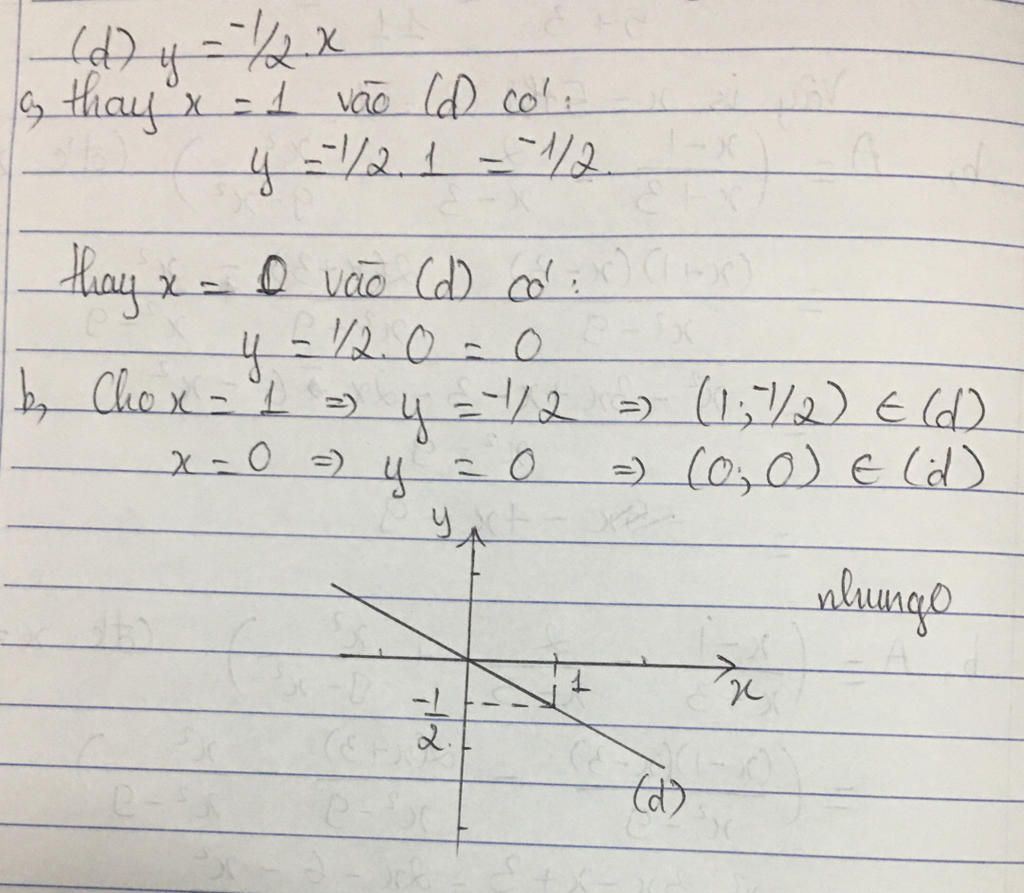 (d) y = -1/2.x
a, thay x = 1 vào (d) có:
y = -1/2. 1 = -1/2.
thay x = 0 vào (d) có:
y = 1/2. 0 = 0
b, Cho x = 1 => y = -1/2 => (1; -1/2) ∈ (d)
x = 0 => y = 0 => (0; 0) ∈ (d)
y
nhungo
1
x
-1/2
(d)